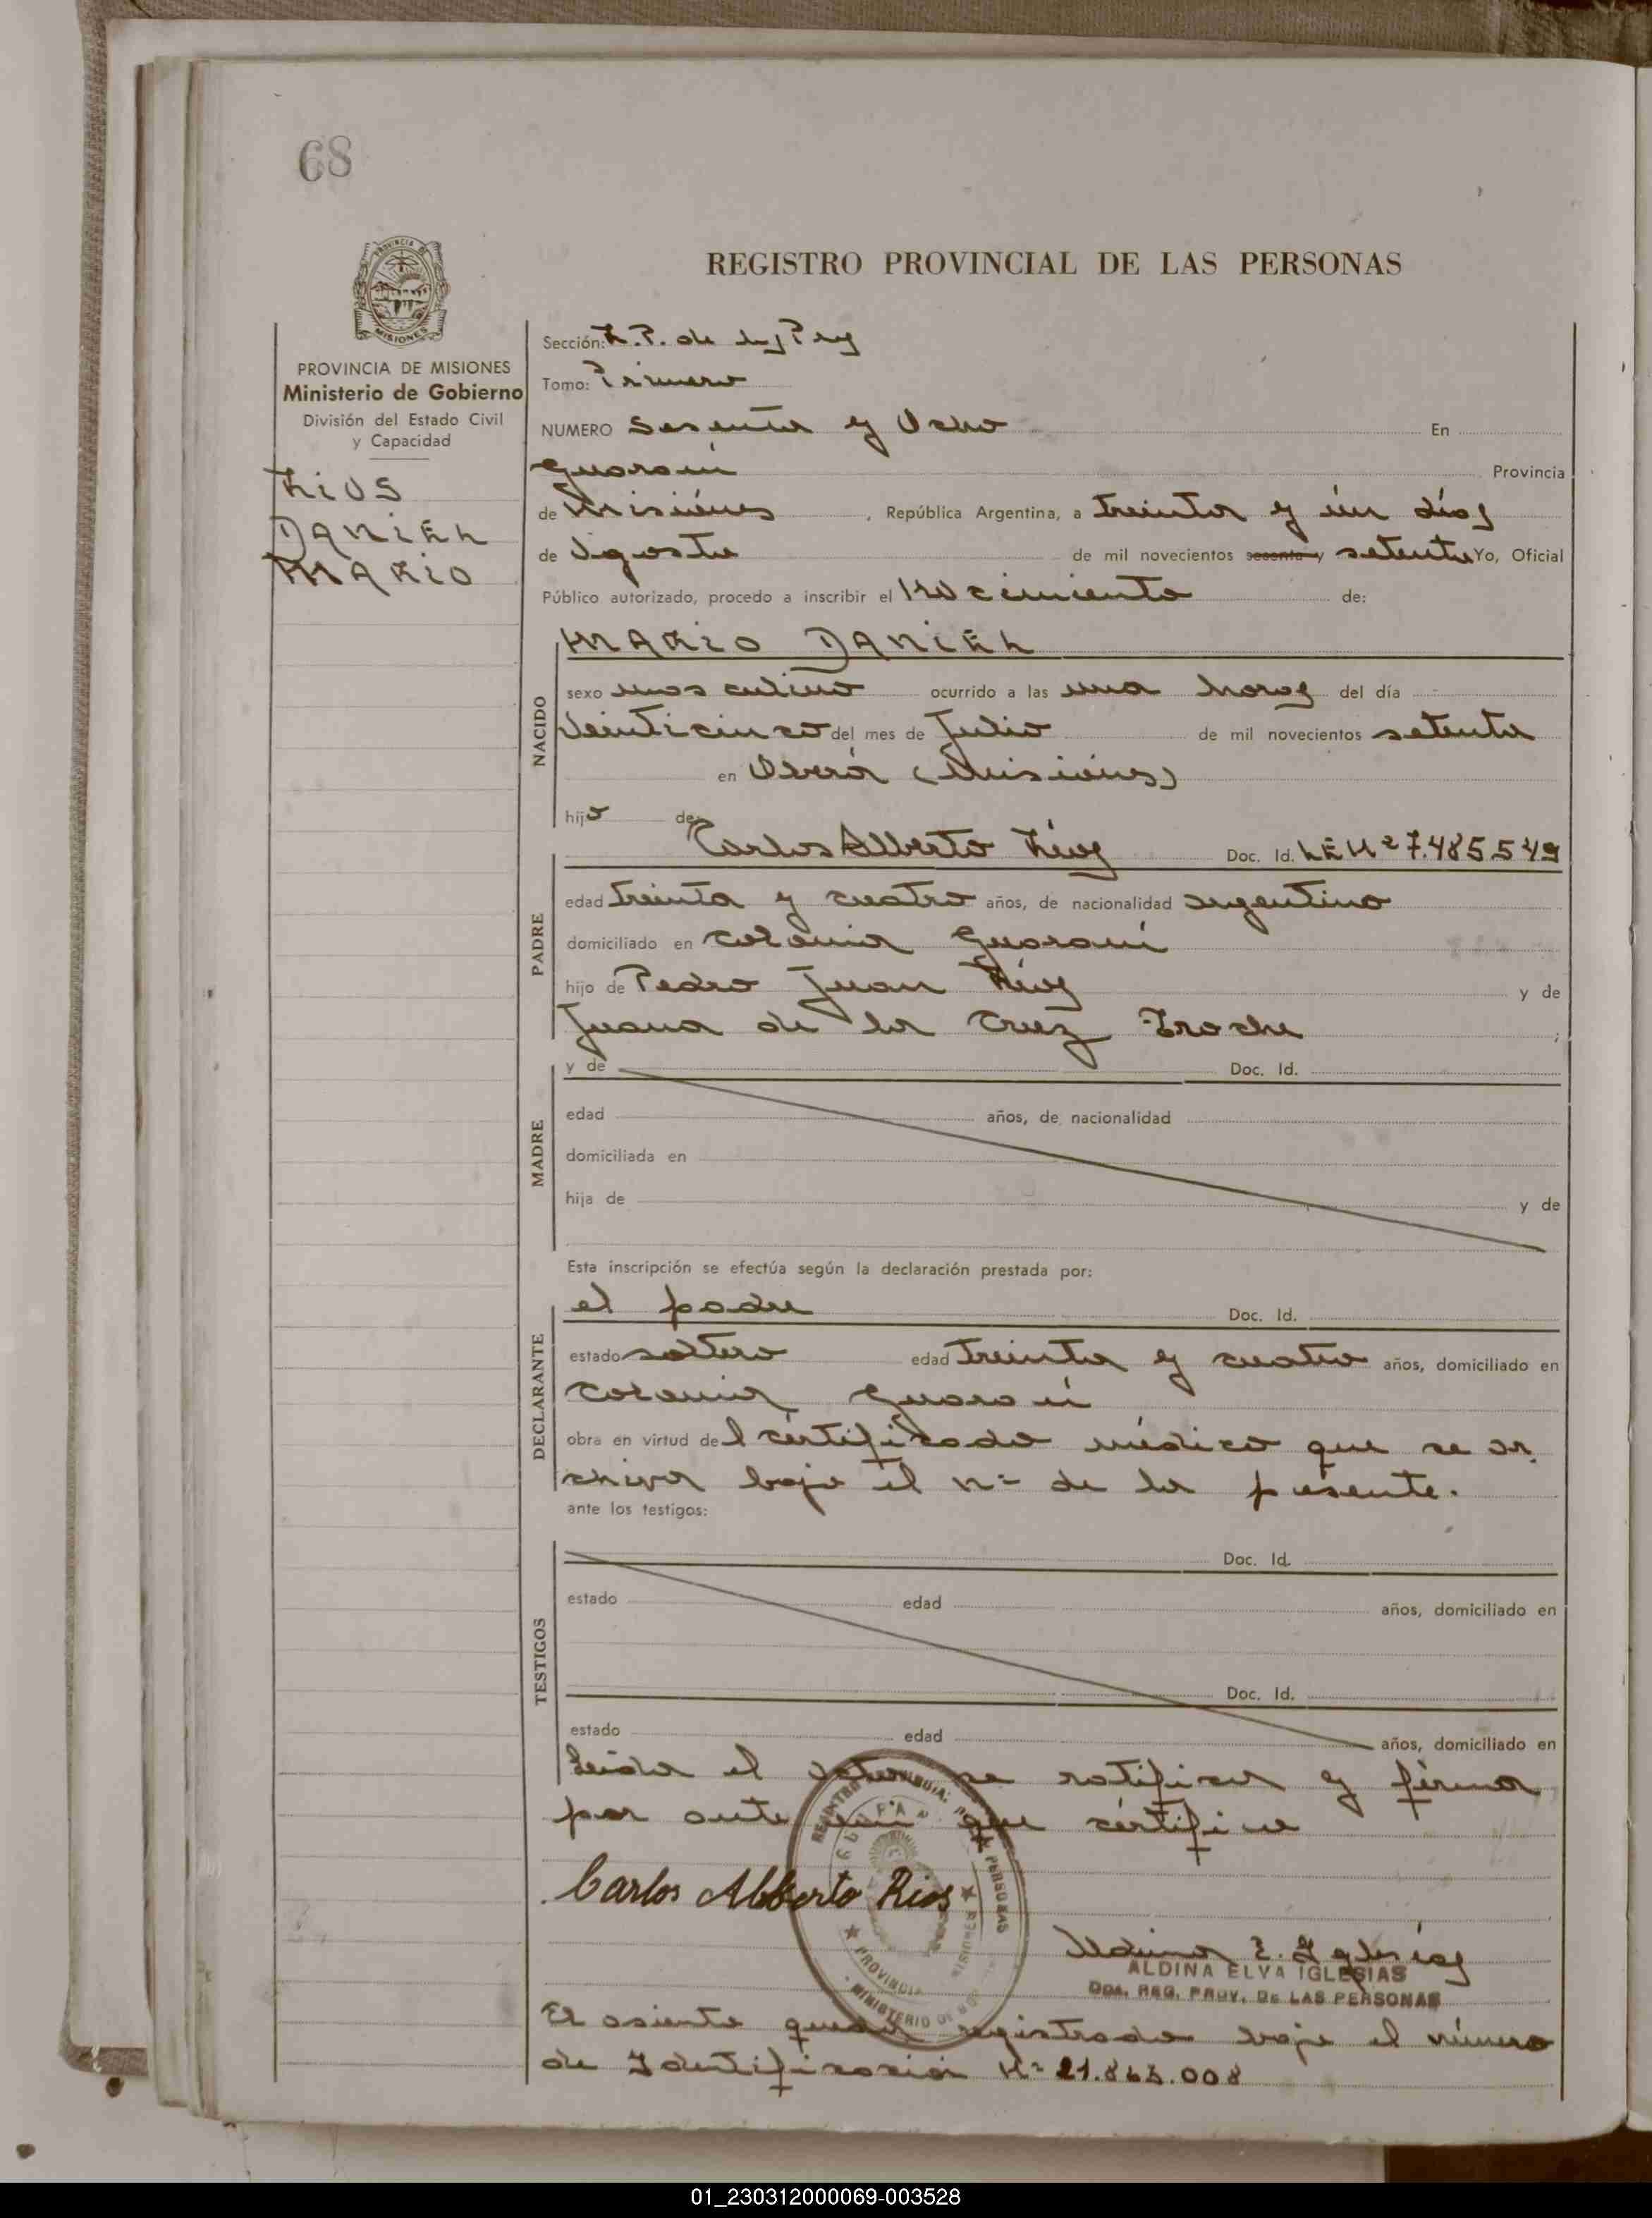 68
PROVINCIA DE
MISIONES
PROVINCIA DE MISIONES
Ministerio de Gobierno
División del Estado Civil
y Capacidad
RIOS
DANIEL
MARIO
REGISTRO PROVINCIAL DE LAS PERSONAS
Sección: R.P. de las Per
Tomo: Primero
NUMERO Sesenta y Ocho En
Guarani Provincia
de Misiónes, República Argentina, a treinta y ún días
de Agosto de mil novecientos sesenta y setenta Yo, Oficial
Público autorizado, procedo a inscribir el Nacimiento de:
MARIO DANIEL
NACIDO
sexo masculino ocurrido a las una horas del día
Veinticinco del mes de Julio de mil novecientos setenta
en Oberá (Misiónes)
hijo de
Carlos Alberto Ríos Doc. Id. LE Nº 7.485.549
PADRE
edad treinta y cuatro años, de nacionalidad argentino
domiciliado en colonia Guarani
hijo de Pedro Juan Ríos y de
Juana de la Cruz Troche ;
MADRE
y de Doc. Id.
edad años, de nacionalidad
domiciliada en
hija de y de
Esta inscripción se efectúa según la declaración prestada por:
el padre Doc. Id.
DECLARANTE
estado soltero edad treinta y cuatro años, domiciliado en
colonia Guarani
obra en virtud del cértificado médico que se ar
chiva bajo el nº de la presente.
ante los testigos:
TESTIGOS
Doc. Id.
estado edad años, domiciliado en
Doc. Id.
estado edad años, domiciliado en
Leida el acta se ratifica y firma
por ante mi que cértifico
Carlos Alberto Rios
Aldina E. Iglesias
ALDINA ELVA IGLESIAS
DDA. REG. PROV. De LAS PERSONAS
El asiento queda registrado bajo el número
de Identificación Nº 21.863.008
01_230312000069-003528